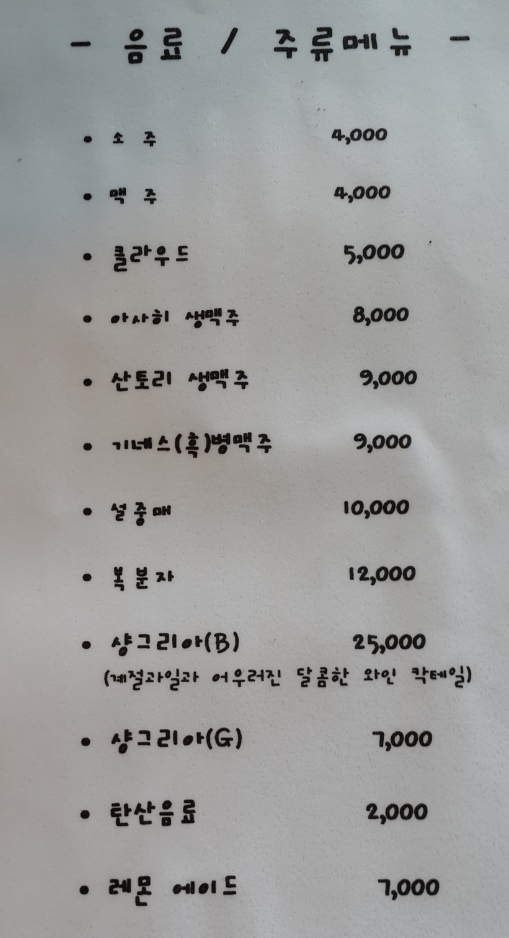 - 음료 / 주류메뉴 -
• 소주 4,000
• 맥주 4,000
• 클라우드 5,000
• 아사히 생맥주 8,000
• 산토리 생맥주 9,000
• 기네스(흑)병맥주 9,000
• 설중매 10,000
• 복분자 12,000
• 샹그리아(B) 25,000
(계절과일과 어우러진 달콤한 와인 칵테일)
• 샹그리아(G) 7,000
• 탄산음료 2,000
• 레몬 에이드 7,000